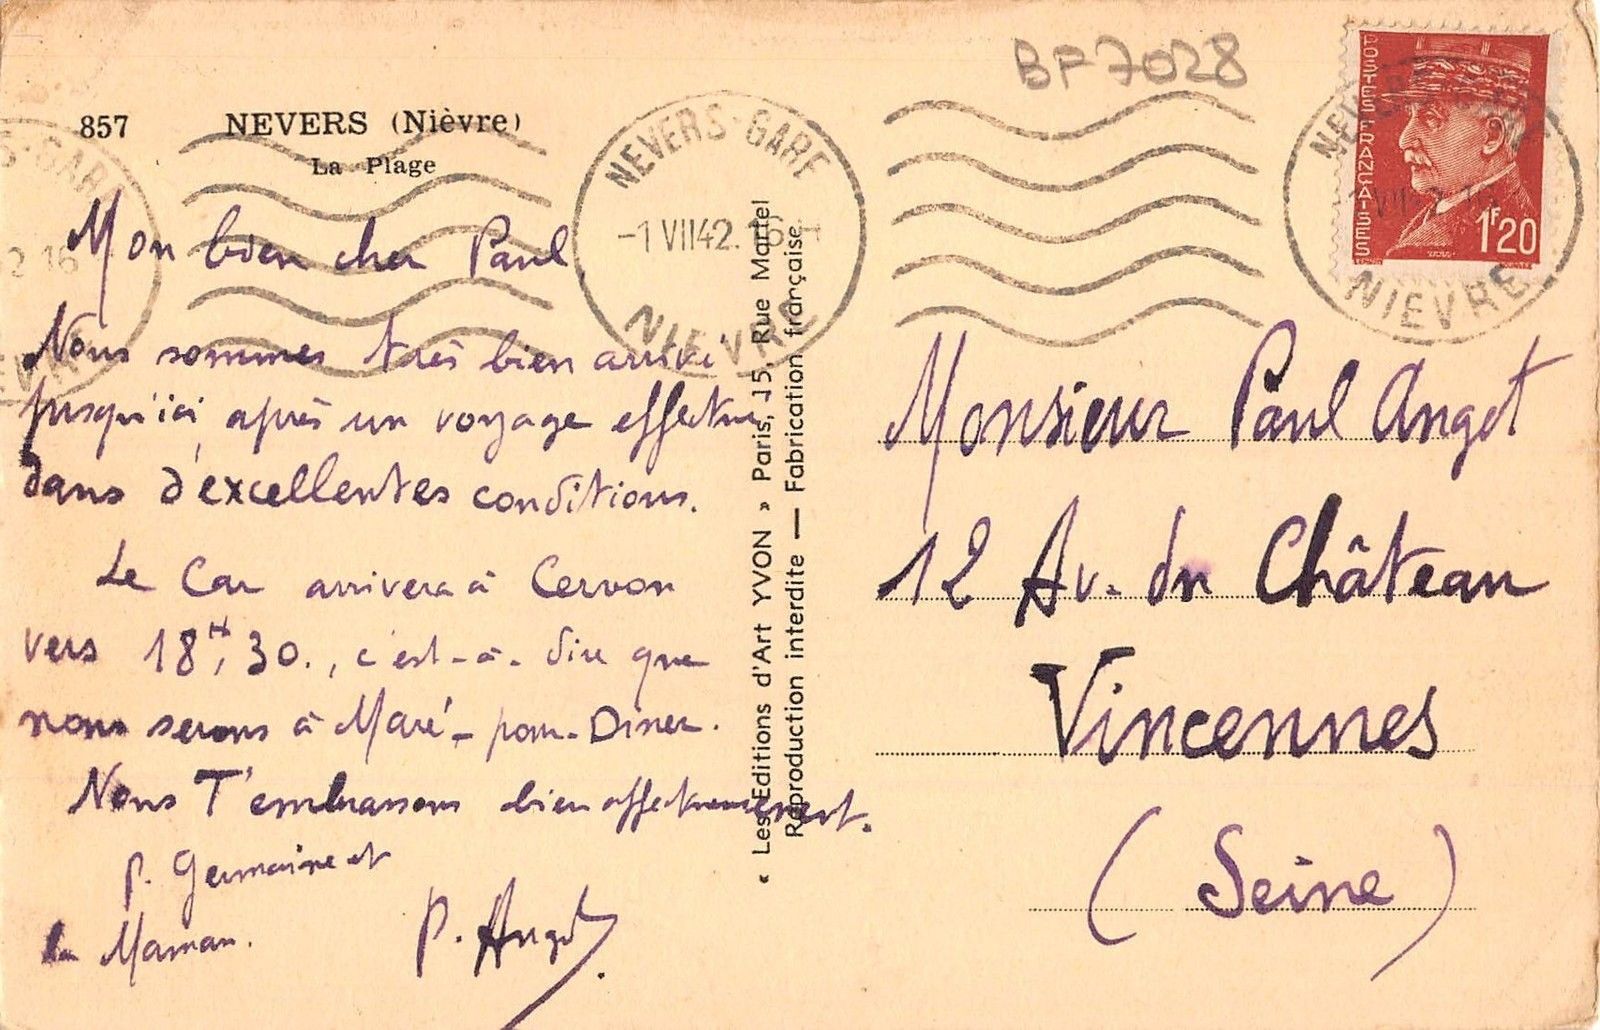 BF7028
857 NEVERS (Nièvre)
La Plage
NEVERS-GARE
-1 VII42. 16H
NIEVRE
POSTES FRANÇAISES
1F20
NIEVRE
Mon bien cher Paul,
Nous sommes très bien arrivé
jusqu'ici après un voyage effectué
dans d'excellentes conditions.
Le Car arrivera à Cervon
vers 18H,30., c'est-à-dire que
nous serons à Maré - pour-Diner.
Nous T'embrassons bien affectueusement.
P. Germaine et
la Maman.
P. Angot
« Les Editions d'Art YVON » Paris, 15, Rue Martel
Reproduction interdite — Fabrication française
Monsieur Paul Angot
12 Av. du Château
Vincennes
(Seine)